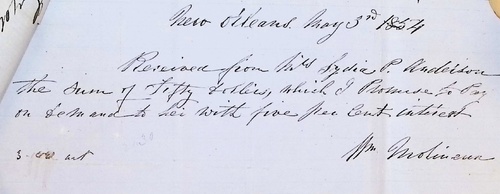 New Orleans. May 3rd 1854
Received from Mrs Lydia P. Anderson
the sum of Fifty dollers, which I Promise to Pay
on demand to her with five per Cent interest
Wm Molineux